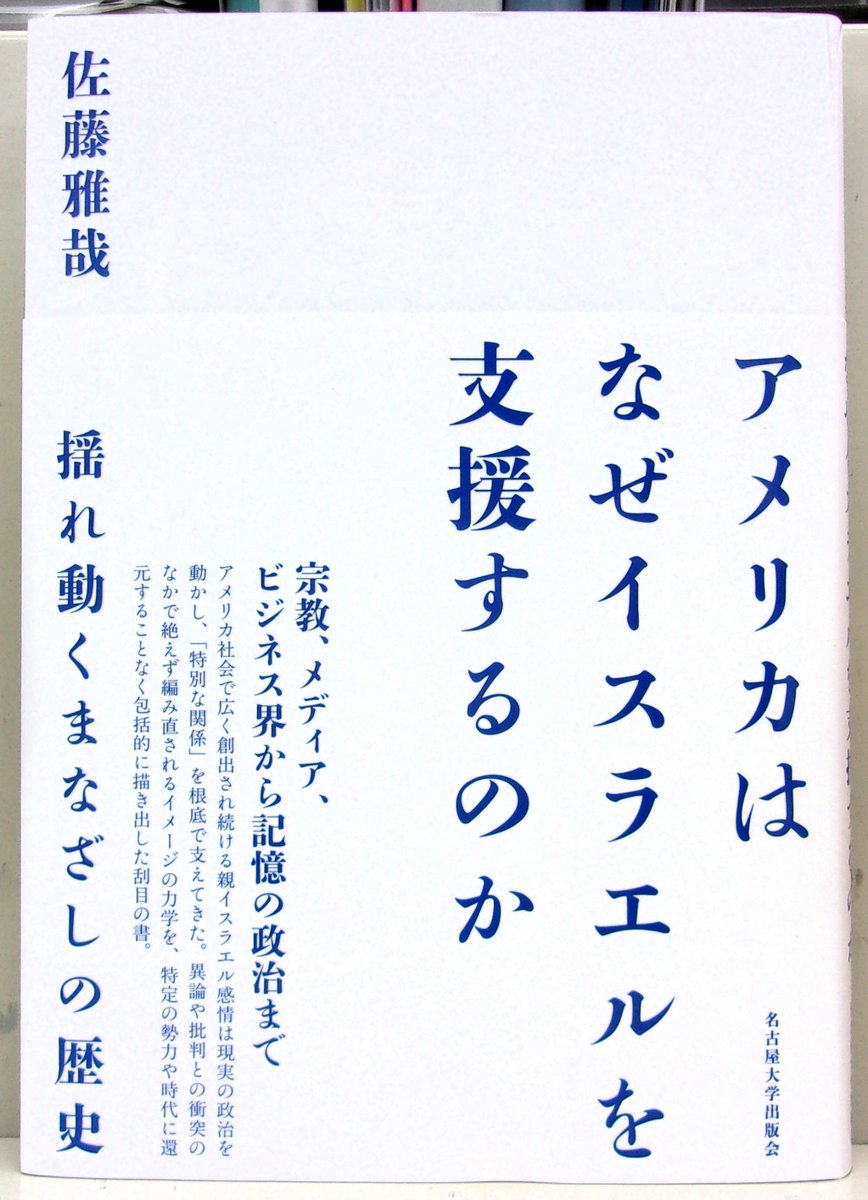 アメリカは
なぜイスラエルを
支援するのか
名古屋大学出版会
宗教、メディア、
ビジネス界から記憶の政治まで
アメリカ社会で広く創出され続ける親イスラエル感情は現実の政治を
動かし、「特別な関係」を根底で支えてきた。異論や批判との衝突の
なかで絶えず編み直されるイメージの力学を、特定の勢力や時代に還
元することなく包括的に描き出した刮目の書。
佐藤雅哉
揺れ動くまなざしの歴史